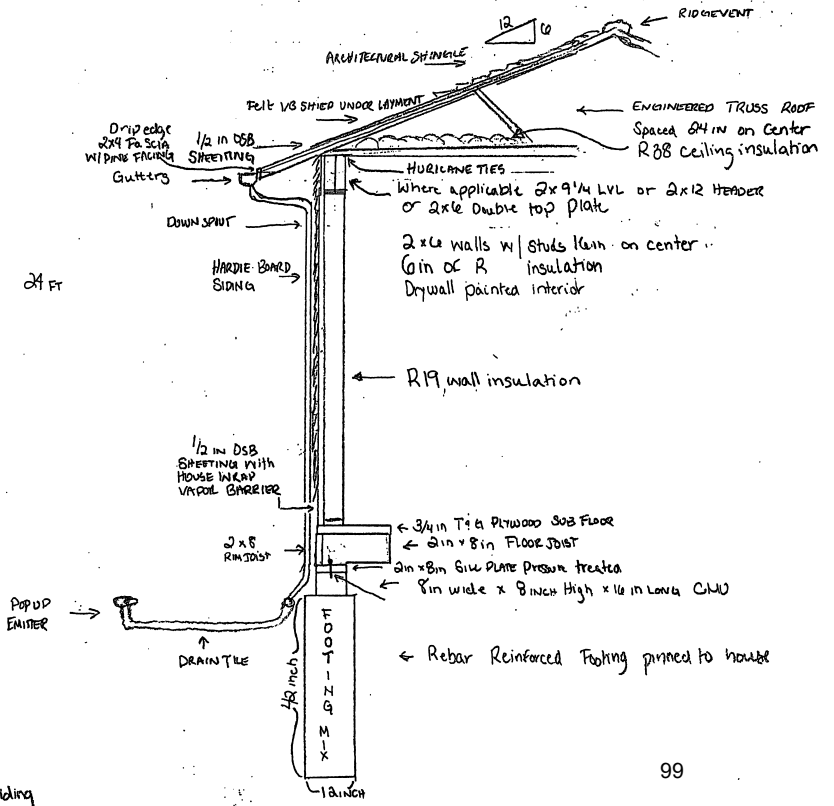 RIDGEVENT
12
6
ARCHITECTURAL SHINGLE
Felt VB SHIED UNDER LAYMENT
ENGINEERED TRUSS ROOF
Spaced 24 IN on Center
R38 ceiling insulation
Drip edge
2x4 Fascia
W/ PINE FACING
Gutters
1/2 in OSB
SHEETING
HURICANE TIES
Where applicable 2x9 1/4 LVL or 2x12 HEADER
or 2x6 Double top Plate
DOWN SPOUT
2x6 walls w/ studs 16in on center
6in of R insulation
Drywall painted interior
HARDIE BOARD
SIDING
24 FT
R19 wall insulation
1/2 IN OSB
SHEETING with
HOUSE WRAP
VAPOR BARRIER
3/4 in T&G PLYWOOD SUB FLOOR
2in x 8in FLOOR JOIST
2x8
RIM JOIST
2in x 8in SILL PLATE Pressure treated
8in wide x 8 INCH High x 16 in LONG CMU
POP UP
EMITTER
DRAIN TILE
FOOTING MIX
42 inch
Rebar Reinforced Footing pinned to house
12 INCH
99
iding